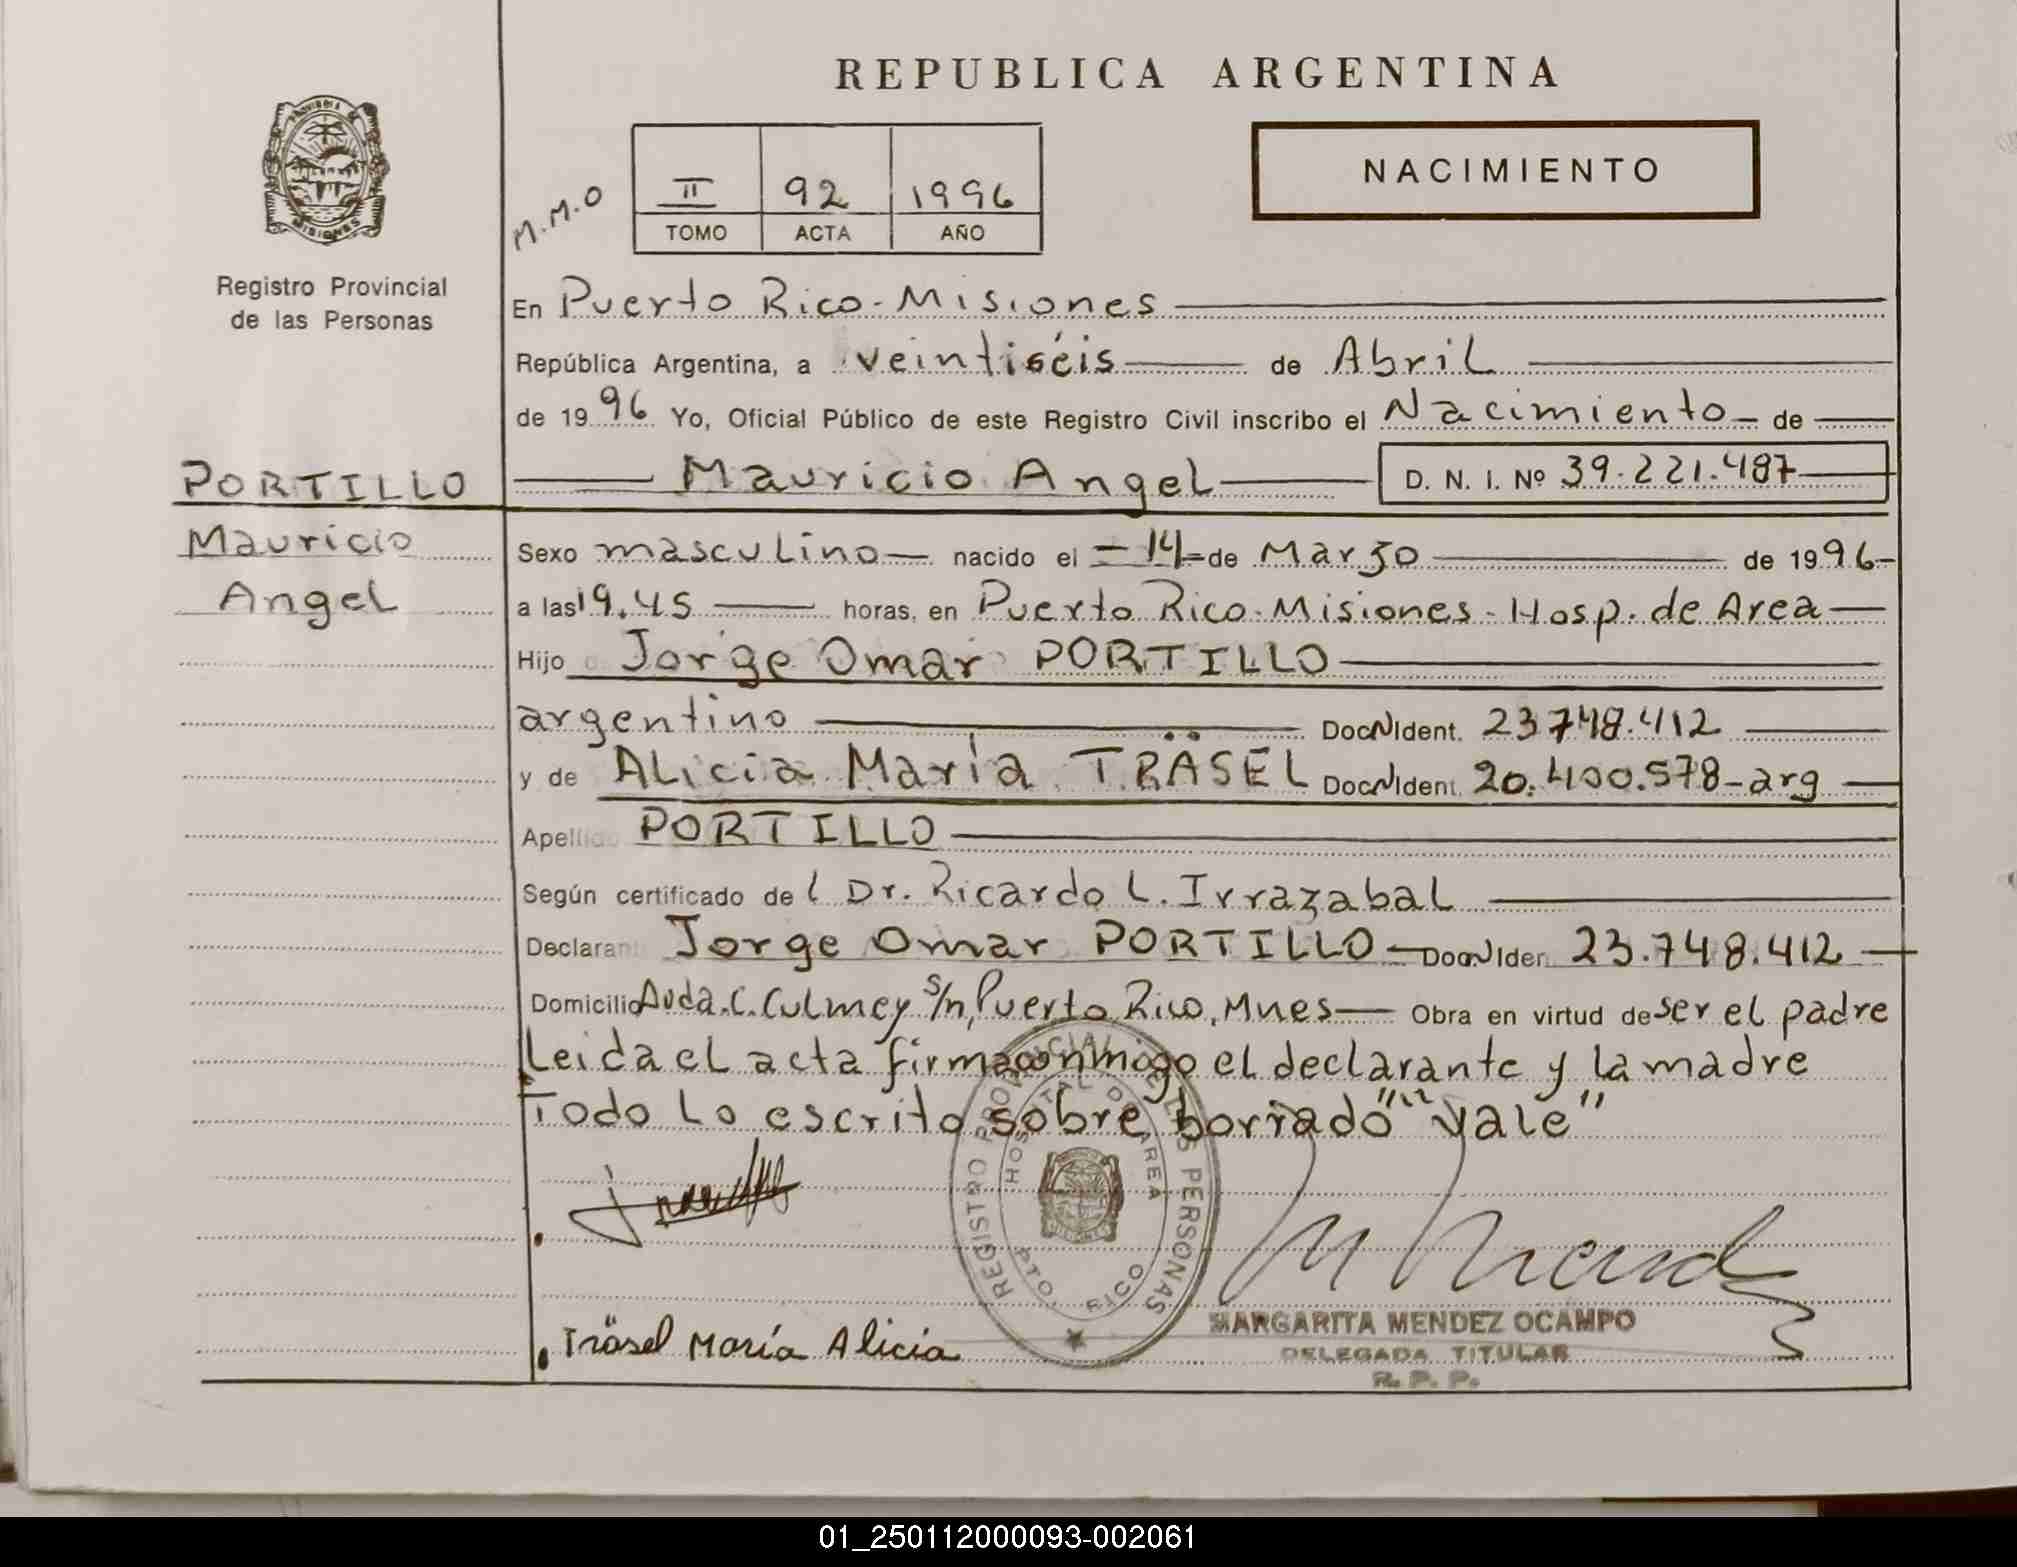 REPUBLICA ARGENTINA
PROVINCIA DE MISIONES
NACIMIENTO
M.M.O
II 92 1996
TOMO ACTA AÑO
Registro Provincial
de las Personas
En Puerto Rico-Misiones
República Argentina, a veintiséis de Abril
de 1996 Yo, Oficial Público de este Registro Civil inscribo el Nacimiento de
Mauricio Angel D. N. I. Nº 39.221.487
PORTILLO
Mauricio
Angel
Sexo masculino nacido el 14 de Marzo de 1996
a las 19.45 horas, en Puerto Rico-Misiones-Hosp. de Area
Hijo Jorge Omar PORTILLO
argentino Doc N Ident. 23.748.412
y de Alicia María TRÄSEL Doc N Ident. 20.400.578-arg
Apellido PORTILLO
Según certificado del Dr. Ricardo L. Irrazabal
Declarant Jorge Omar PORTILLO Doc. N Iden 23.748.412
Domicilio Avda. C. Culmey s/n, Puerto Rico, Mnes Obra en virtud de ser el padre
Leida el acta firman conmigo el declarante y la madre
Todo lo escrito sobre borrado "" vale"
REGISTRO PROVINCIAL DE LAS PERSONAS
HOSPITAL DE AREA
PTO. RICO
Träsel María Alicia
MARGARITA MENDEZ OCAMPO
DELEGADA TITULAR
R. P. P.
01_250112000093-002061